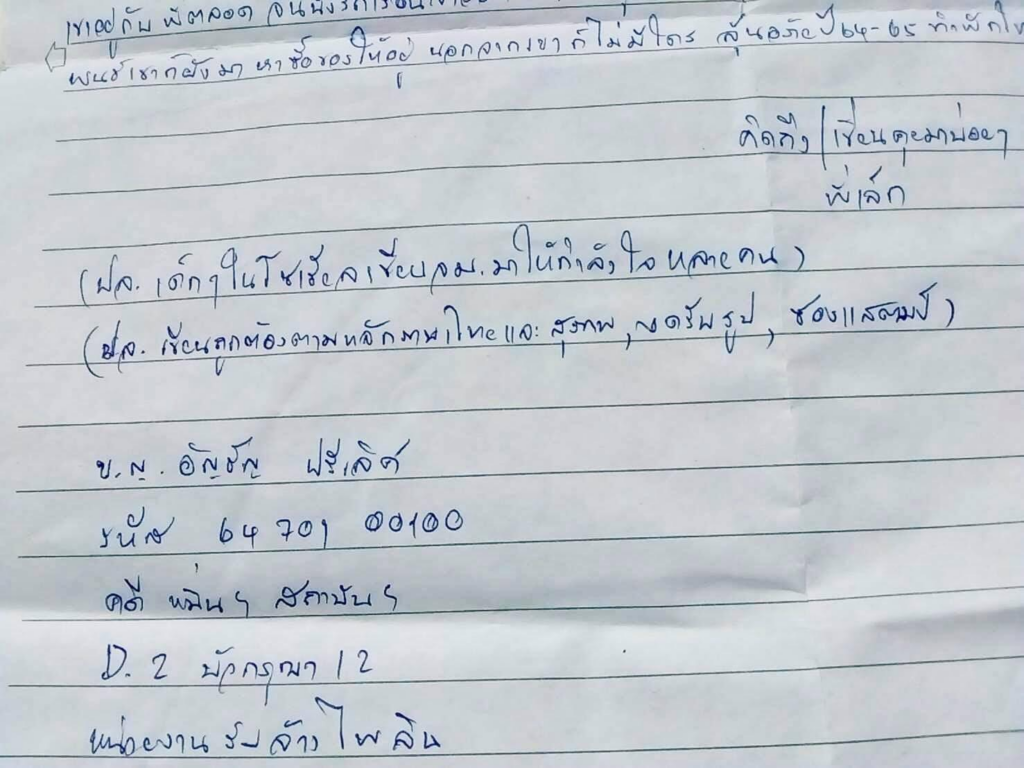 เขาอยู่กับพี่ตลอด จนนั่ง
เขาก็ยังมาหาซื้อของให้อยู่ นอกจากเขาก็ไม่มีใคร ลุ้นอภัยปี 64-65
คิดถึง / เขียนคุยมาบ่อยๆ
พี่เล็ก
(ปล. เด็กๆ ในโซเชียลเขียน จม. มาให้กำลังใจหลายคน)
(ปล. เขียนถูกต้องตามหลักภาษาไทยและสุภาพ, งดรับรูป, ซองแสตมป์)
ข.ญ. อัญชัญ ปรีเลิศ
รหัส 64 701 00100
คดี หมิ่นฯ สถาบันฯ
D. 2 บัวกรุณา / 2
หน่วยงาน รับจ้าง ไพลิน